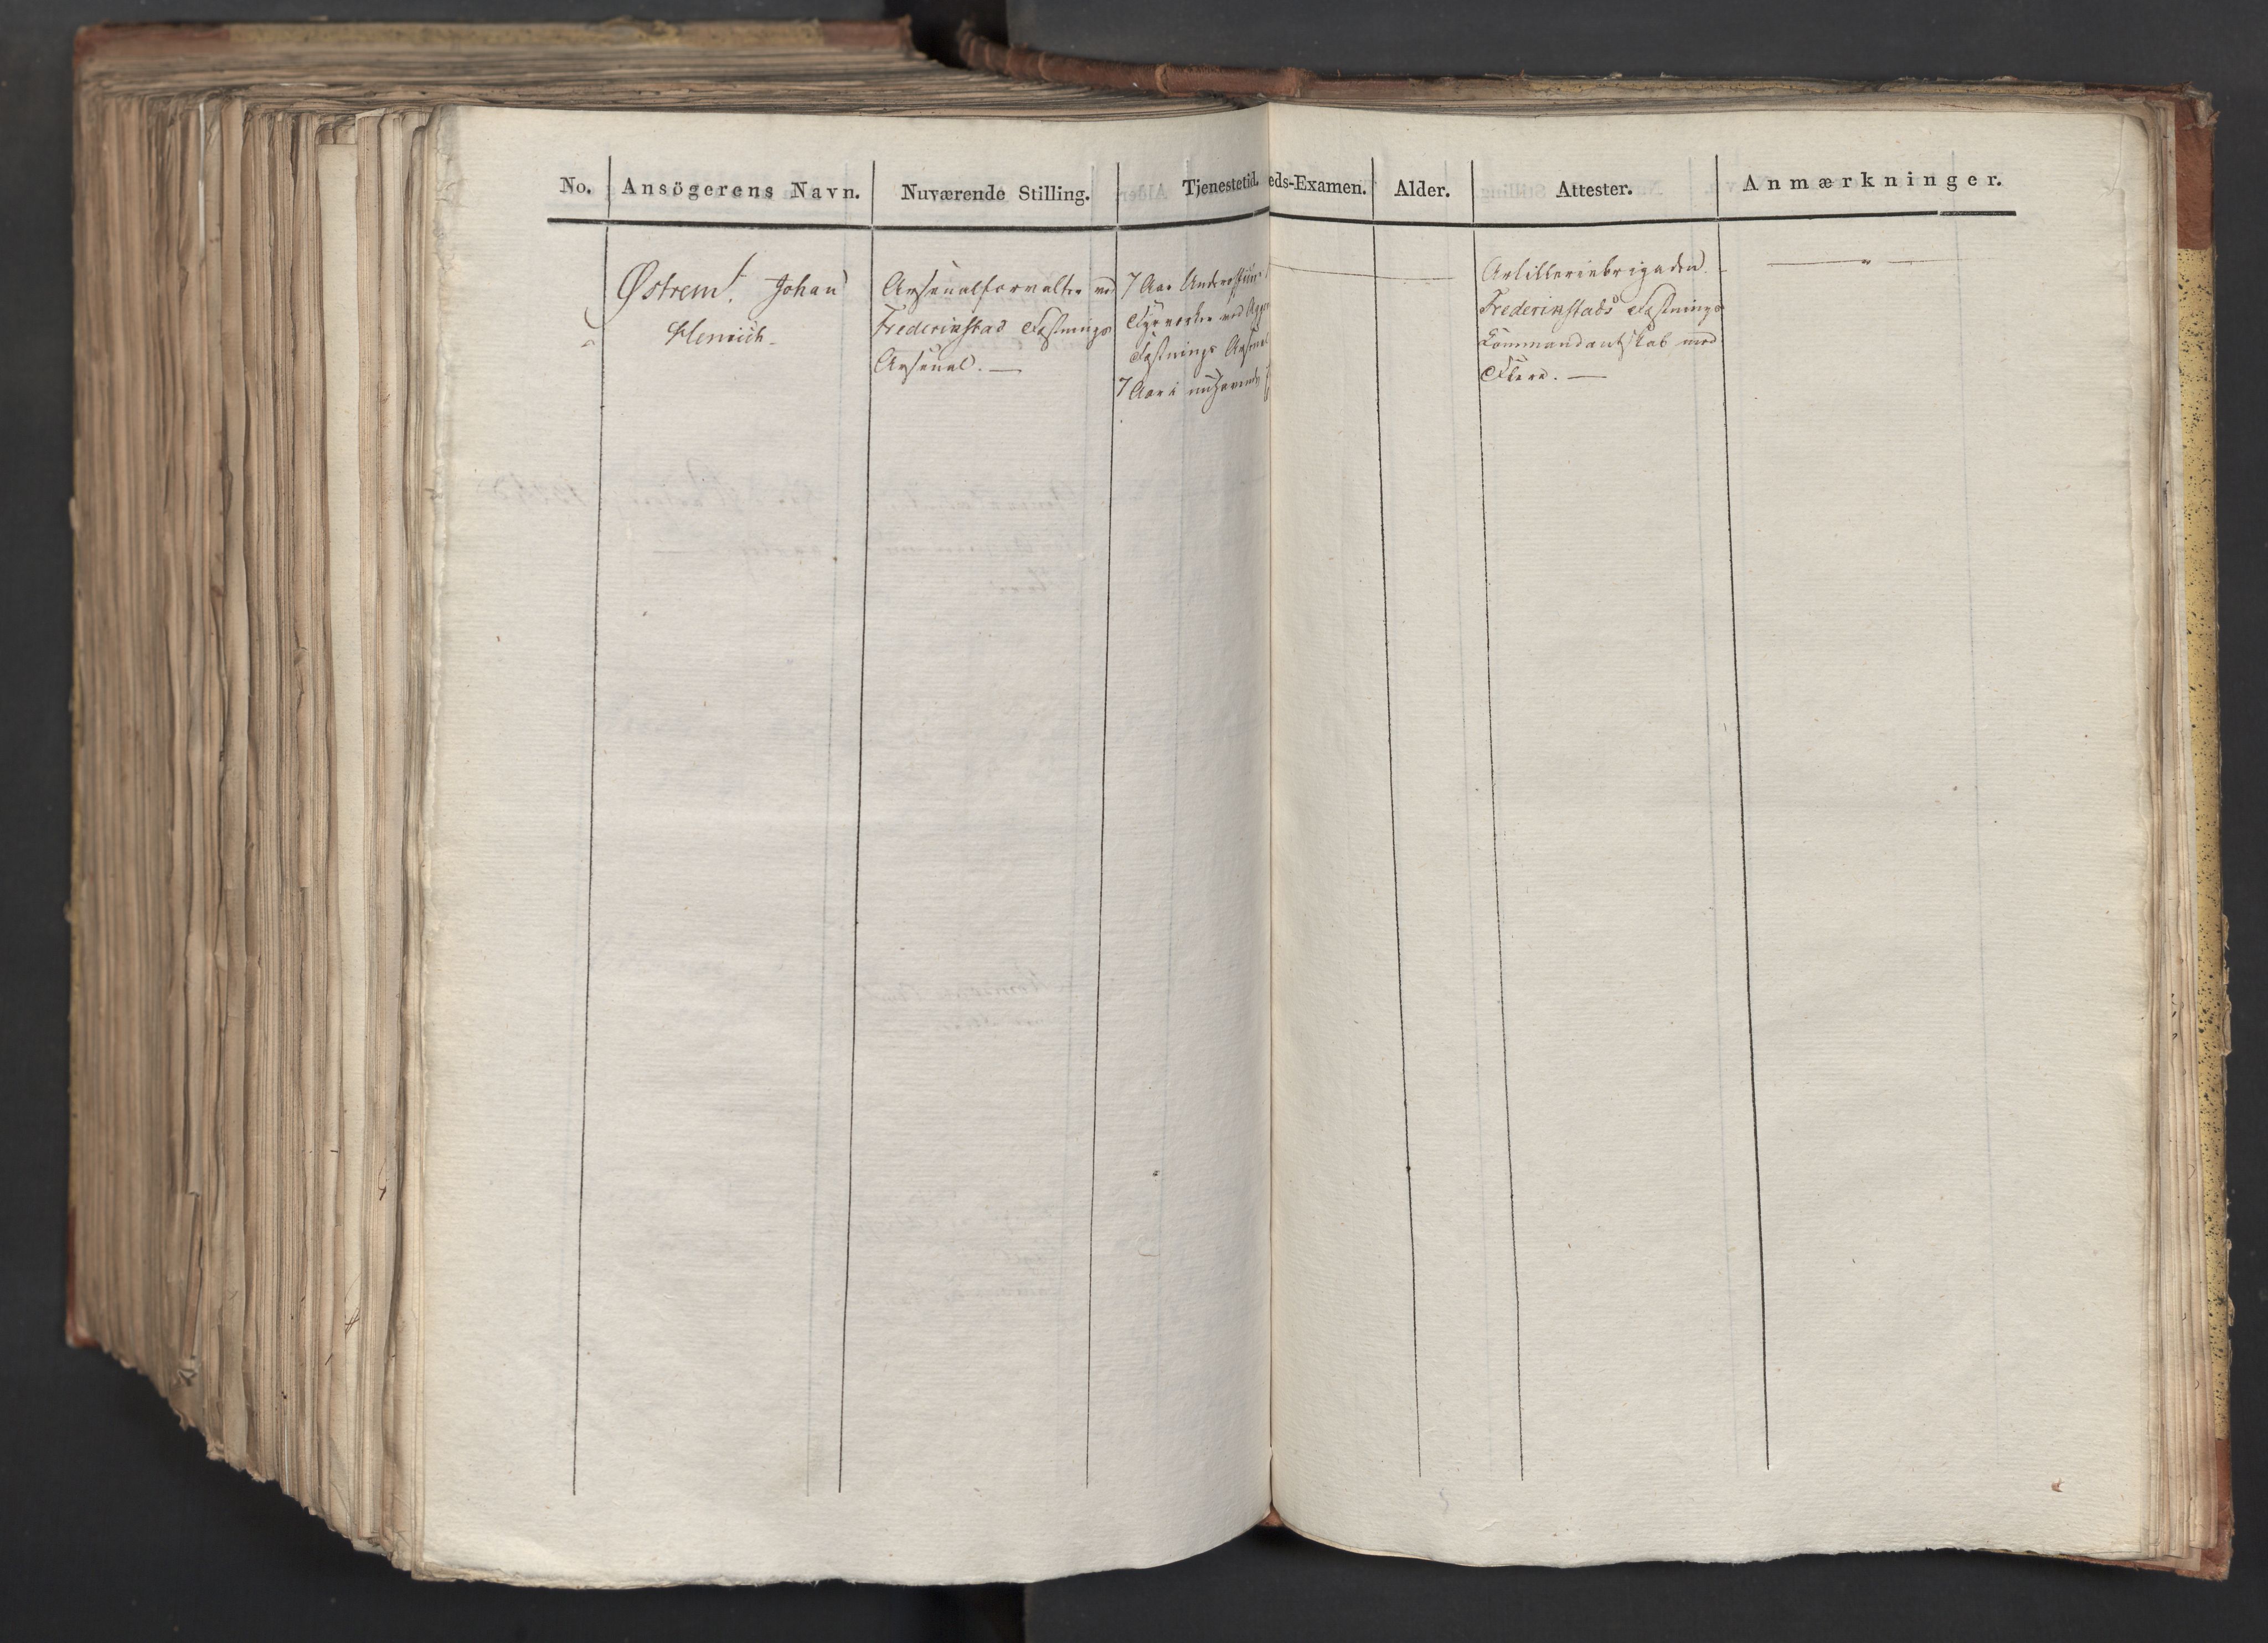 No. Ansögerens Navn. Nuværende Stilling. Tjenestetid. eds-Examen. Alder. Attester. Anmærkninger.
Østrem, Johan
Henrich
Arsenalforvalter ved
Frederikstad Fæstnings
Arsenal. —
7 Aar
Fyrværker ved
Fæstnings Arsenal
7 Aar i nuhavende
Artilleriebrigaden.
Frederikstads Fæstnings
Kommandantskab med
Flere. —
— " —